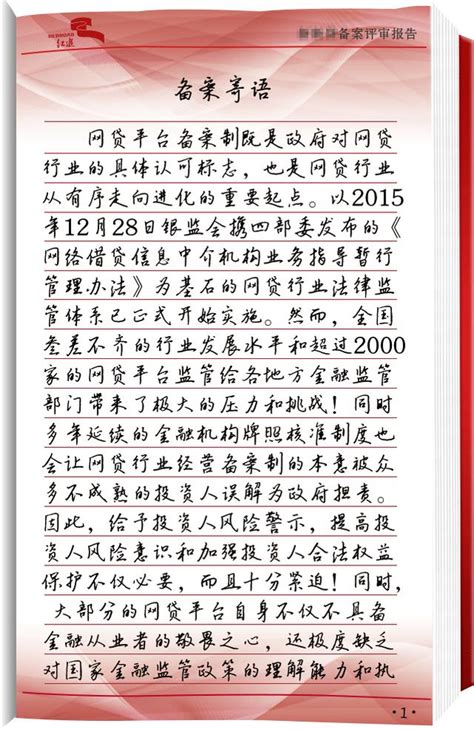 红波
备案评审报告
备案寄语
网贷平台备案制既是政府对网贷
行业的具体认可标志，也是网贷行业
从有序走向进化的重要起点。以2015
年12月28日银监会携四部委发布的《
网络借贷信息中介机构业务指导暂行
管理办法》为基石的网贷行业法律监
管体系已正式开始实施。然而，全国
参差不齐的行业发展水平和超过2000
家的网贷平台监管给各地方金融监管
部门带来了极大的压力和挑战！同时
多年延续的金融机构牌照核准制度也
会让网贷行业经营备案制的本意被众
多不成熟的投资人误解为政府担责。
因此，给予投资人风险警示，提高投
资人风险意识和加强投资人合法权益
保护不仅必要，而且十分紧迫！同时，
大部分的网贷平台自身不仅不具备
金融从业者的敬畏之心，还极度缺乏
对国家金融监管政策的理解能力和执
·1·